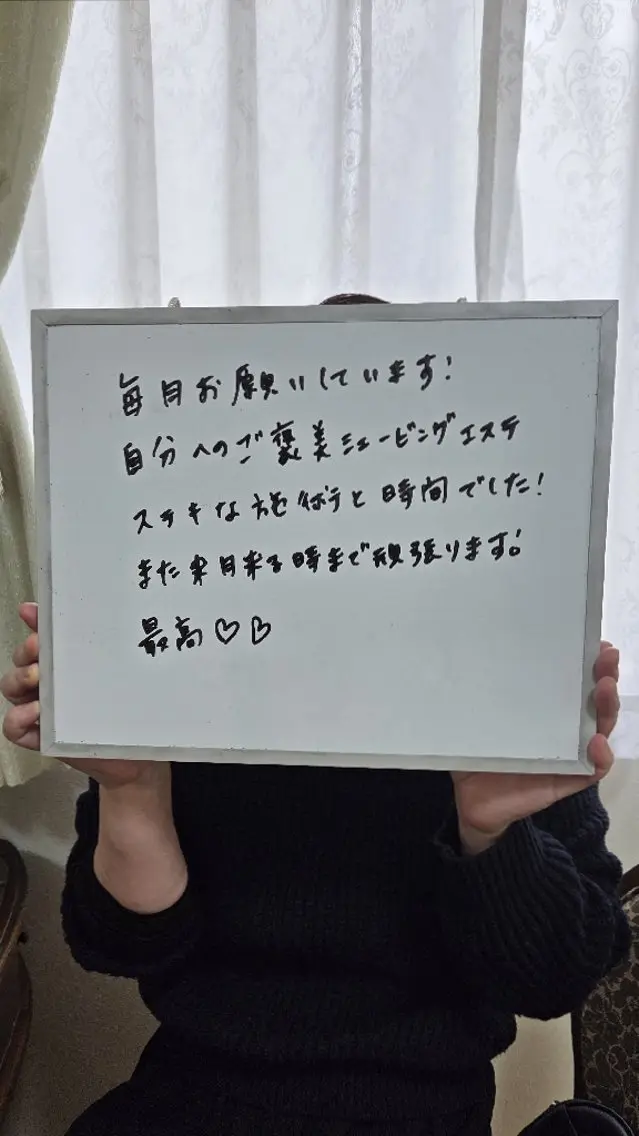 毎月お願いしています!
自分へのご褒美ミュービングエステ
ステキな施術と時間でした!
また来月来る時まで頑張ります!
最高♡♡